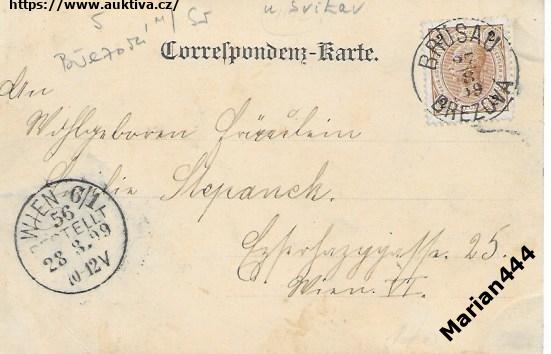 https://www.auktiva.cz/
5
u Svitav
Correspondenz-Karte.
BRÜSAU
27
8
99
BŘEZOVA
An
Wohlgeboren Fräulein
Stepanek.
Esterhazygasse 25.
Wien. VI.
WIEN 6/1
56
BESTELLT
28.8.99
10-12V
Marian444